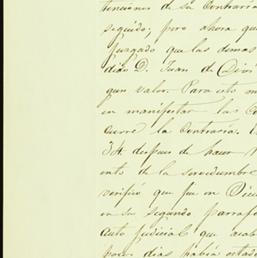 tenciones de su Contraria
seguido; pero ahora que
juzgado que las demas
dias D. Juan de Dios
gun valor. Para esto
en manifestar las
curre la Contraria.
34 despues de hacer
ento de la servidumbre
verificó que fue en Dici
en su segundo parrafo
auto judicial que acab
pocos dias habia estado